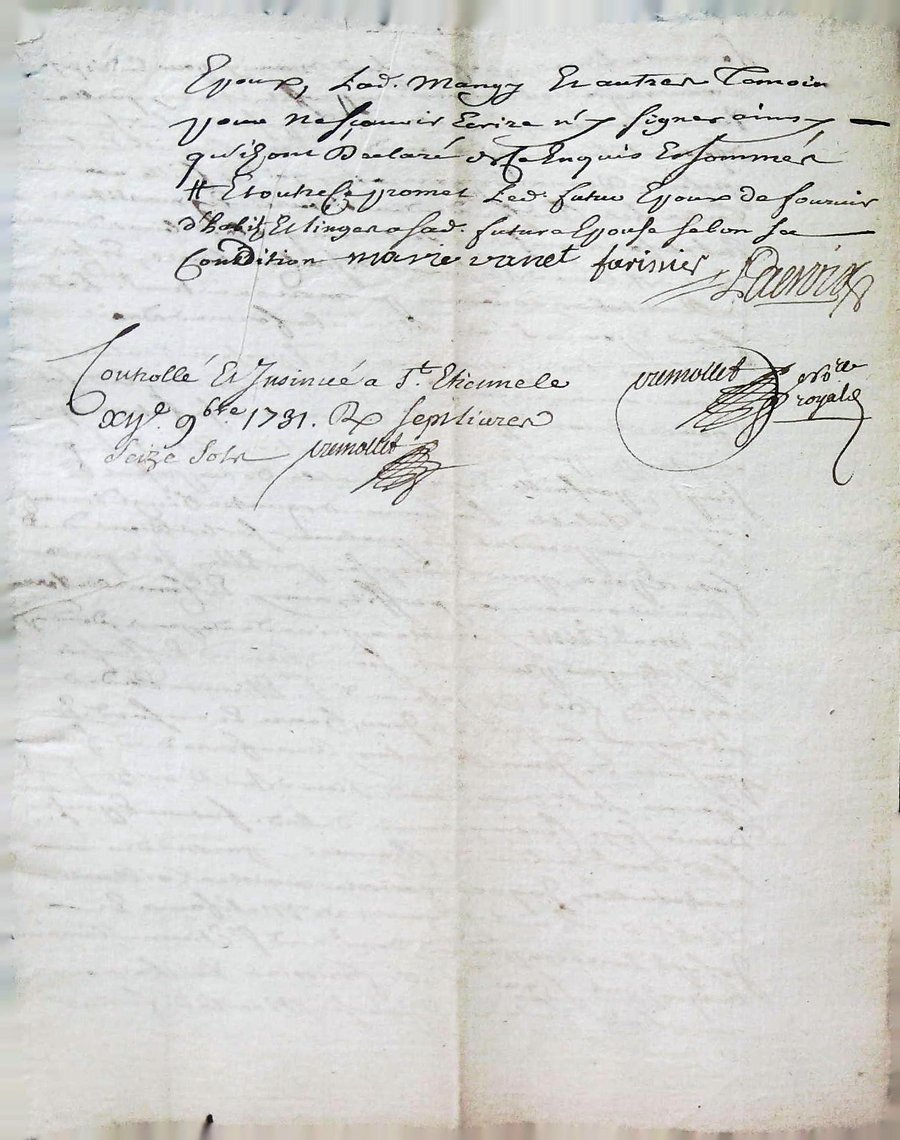 Epoux, Lad. Mangy Et autres Temoin
pour ne scavoir Ecrire n'y signer ainsy
qu'ils ont Declaré de ce Enquis Et sommés
# Et outre ce promet Led. futur Epoux de fournir
d'habit Et linges a sad. future Epouse selon sa
Condition marie vanet farinier
Controllé Et Insinué a St. Etienne le
9bre 1731. Rx sept livres
Seize sols vremollet
vremollet no.re
royal